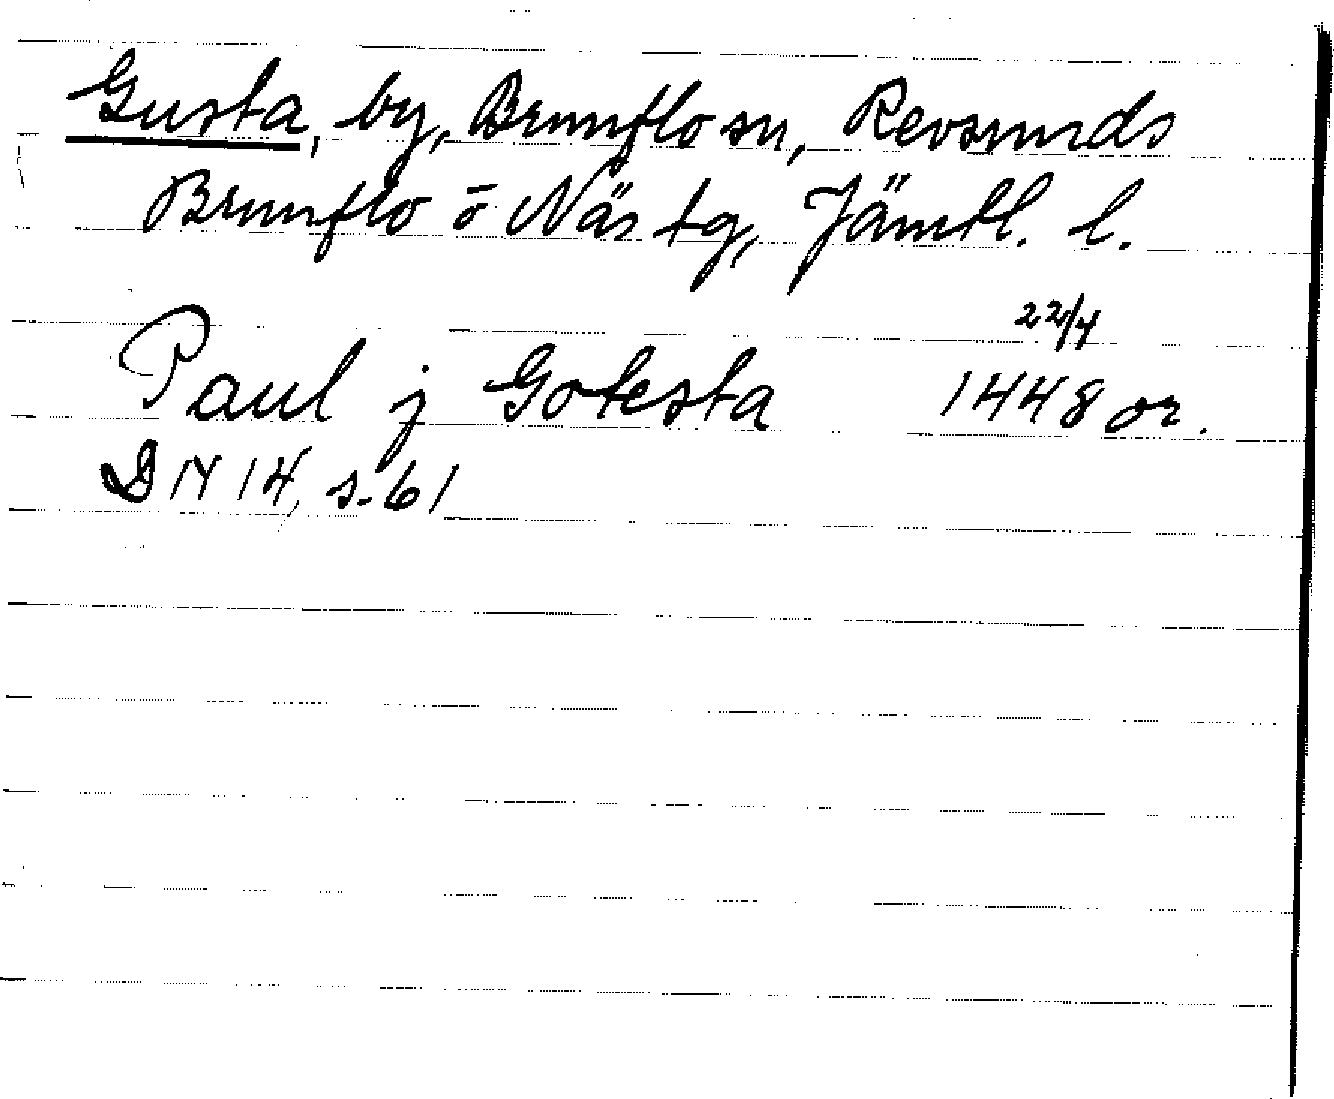 Gusta, by, Brunflo sn, Revsunds
Brunflo o Näs tg, Jämtl. l.
22/4
Paul j Gotesta 1448 or.
DN 14, s. 61